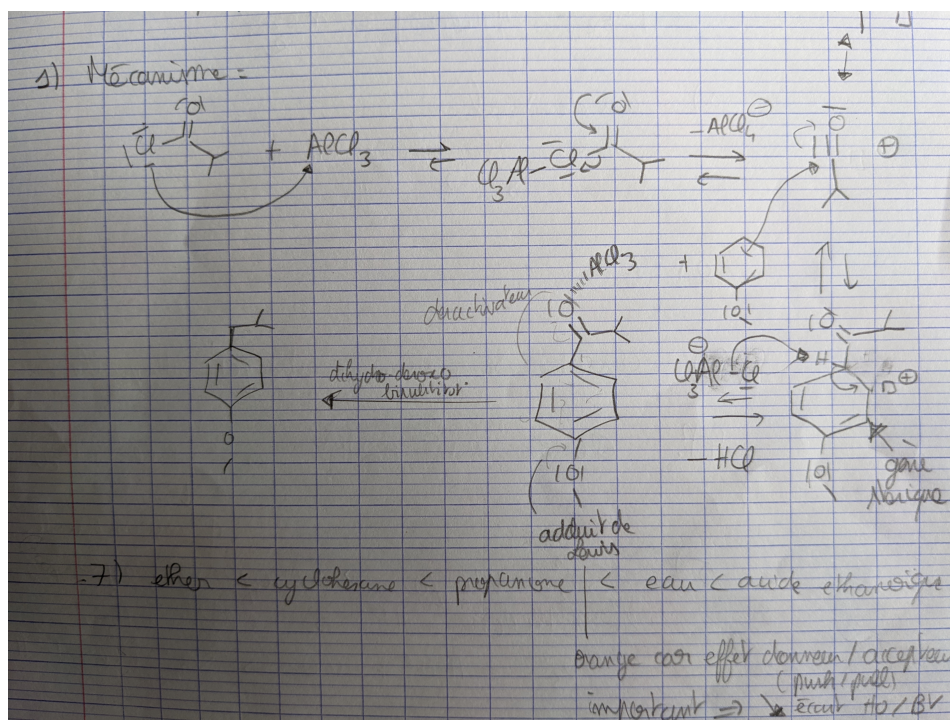 1) Mécanisme =
Cl O + AlCl3
Cl3Al – Cl
– AlCl4 ⊖
O ⊕
AlCl3 +
désactivateur
IOI
IOI
H ⊕
Cl3Al – Cl ⊖
– HCl
gêne
stérique
IOI
O
adduit de
7) ether < cyclohexane < propanone < eau < acide ethanoïque
orange car effet donneur / accepteur
(push/pull)
important ⇒ ↘ écart HO / BV